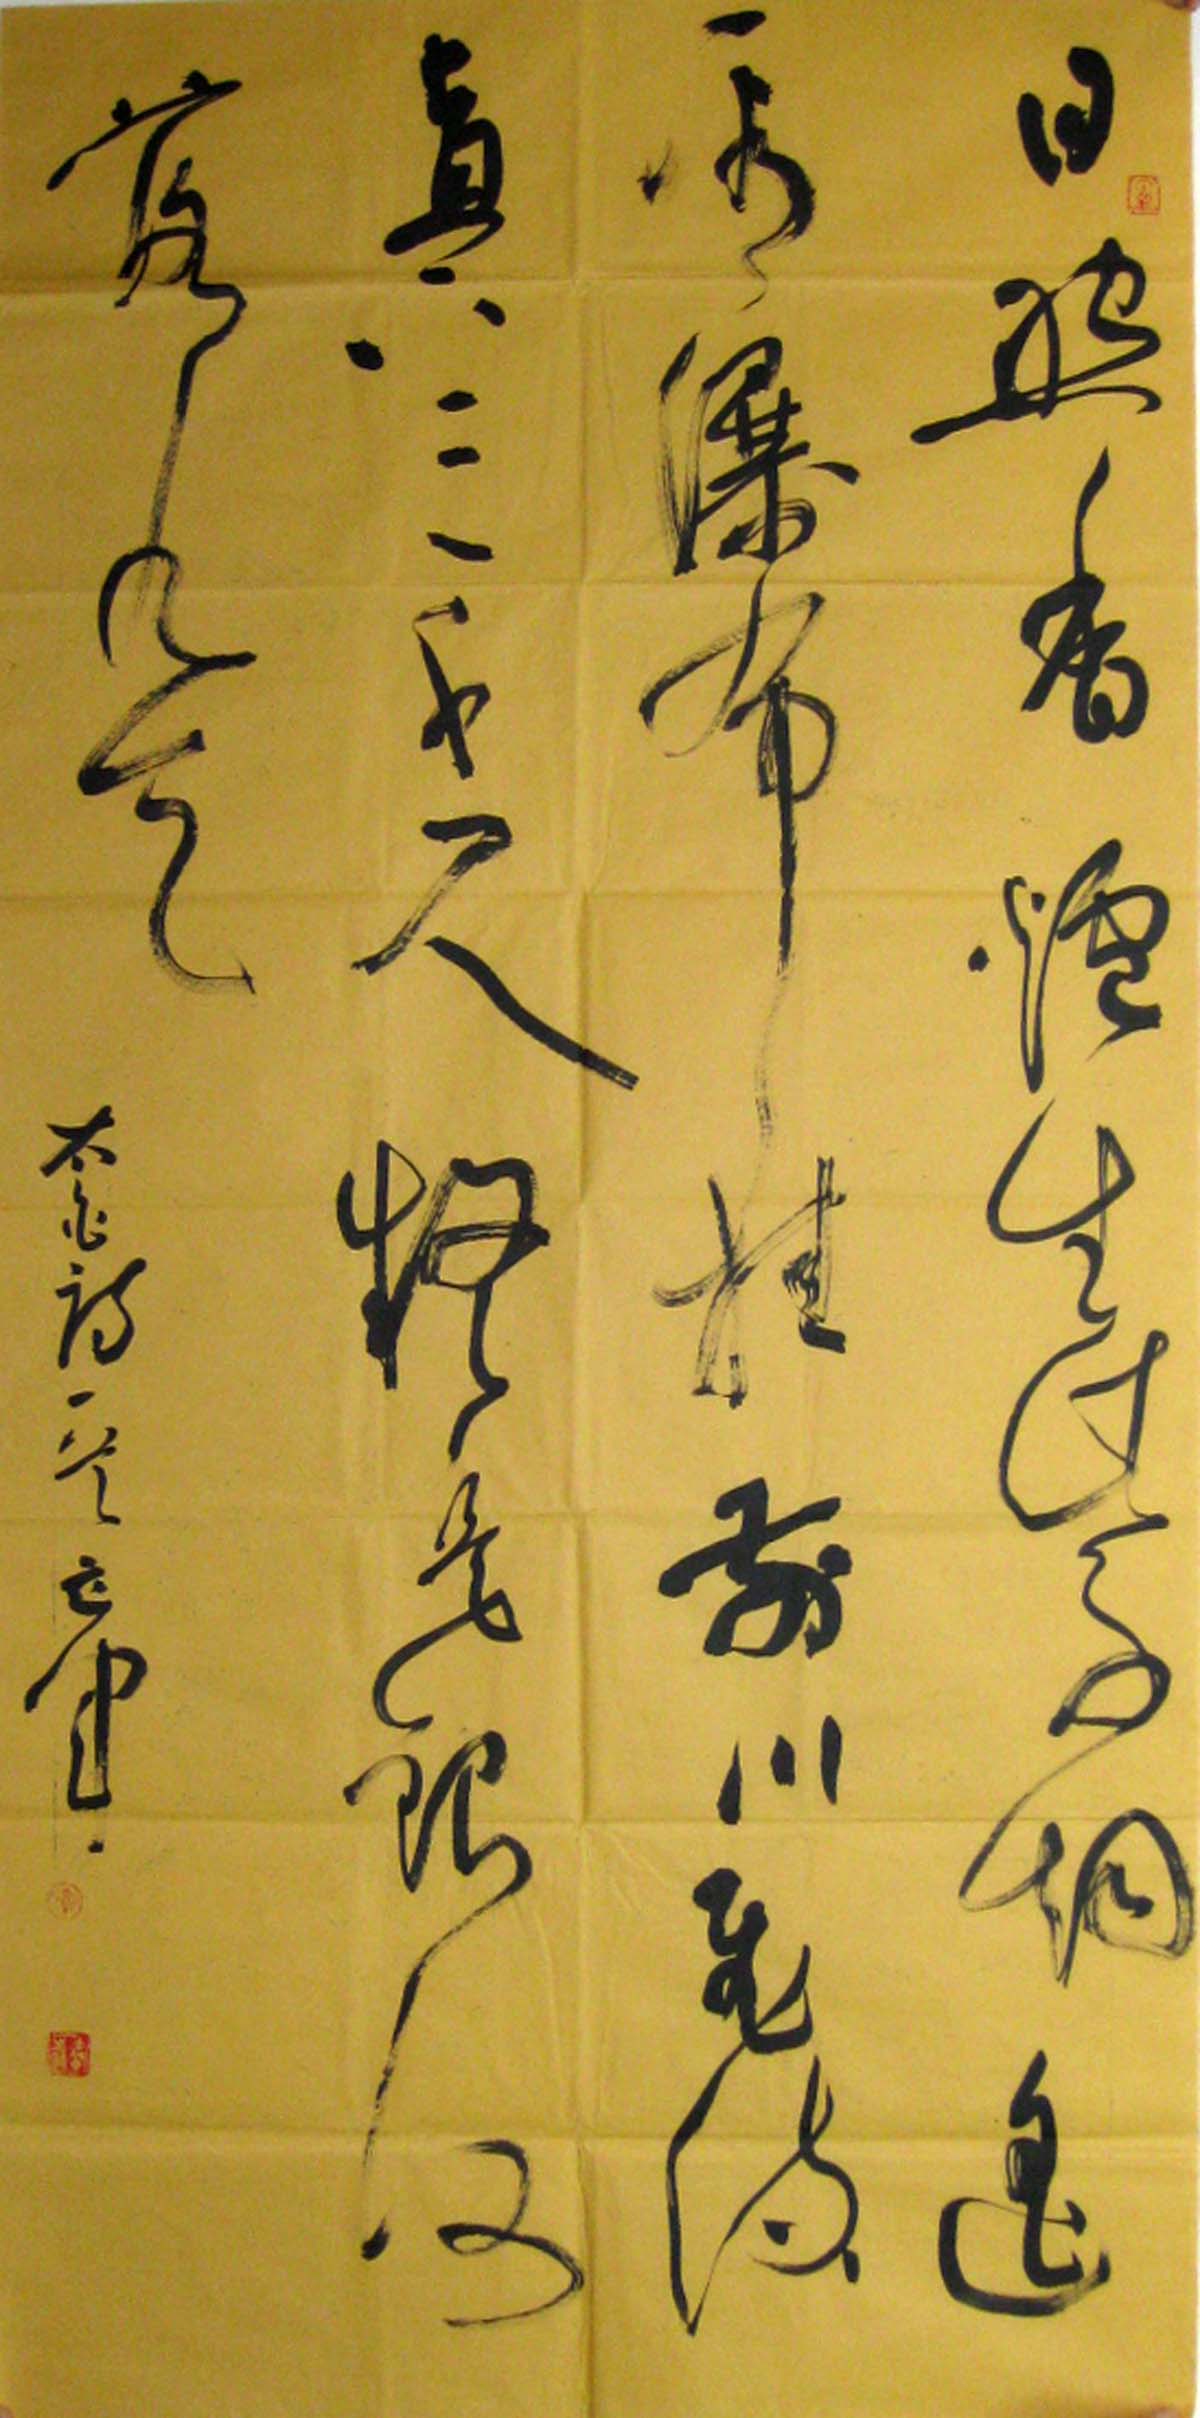 日照香爐生紫烟遙
看瀑布挂前川飛流
直下三千尺疑是銀河
落九天
太白詩一首